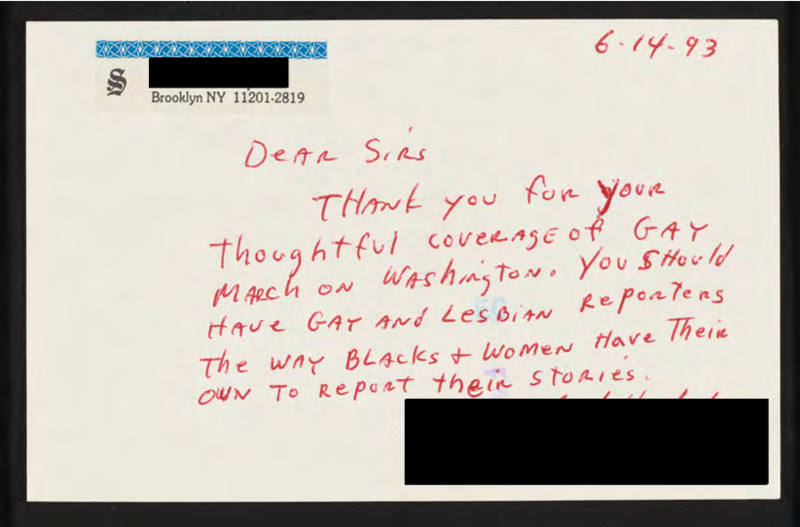 6-14-93
S
Brooklyn NY 11201-2819
Dear Sirs
Thank you for your
thoughtful coverage of Gay
March on Washington. You should
have Gay and Lesbian Reporters
the way Blacks + Women Have Their
own to report their stories.